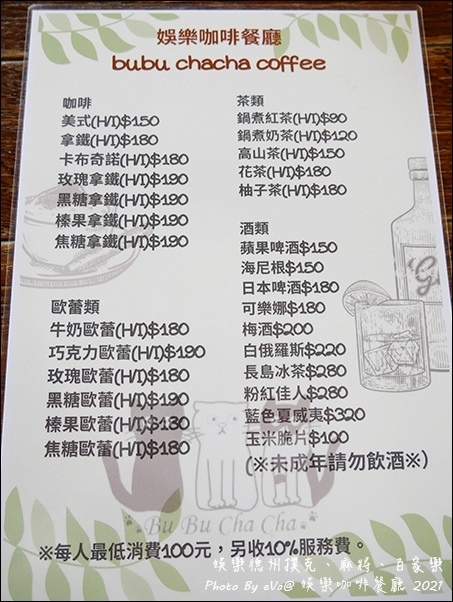 娛樂咖啡餐廳
bubu chacha coffee
咖啡
美式(H/I)$150
拿鐵(H/I)$180
卡布奇諾(H/I)$180
玫瑰拿鐵(H/I)$190
黑糖拿鐵(H/I)$190
榛果拿鐵(H/I)$190
焦糖拿鐵(H/I)$190
歐蕾類
牛奶歐蕾(H/I)$180
巧克力歐蕾(H/I)$190
玫瑰歐蕾(H/I)$180
黑糖歐蕾(H/I)$190
榛果歐蕾(H/I)$180
焦糖歐蕾(H/I)$180
茶類
鍋煮紅茶(H/I)$90
鍋煮奶茶(H/I)$120
高山茶(H/I)$150
花茶(H/I)$180
柚子茶(H/I)$180
酒類
蘋果啤酒$150
海尼根$150
日本啤酒$180
可樂娜$180
梅酒$200
白俄羅斯$220
長島冰茶$280
粉紅佳人$280
藍色夏威夷$320
玉米脆片$100
(※未成年請勿飲酒※)
Bu Bu Cha Cha
※每人最低消費100元，另收10%服務費。
娛樂德州撲克、麻將、百家樂
Photo By eVa@ 娛樂咖啡餐廳 2021